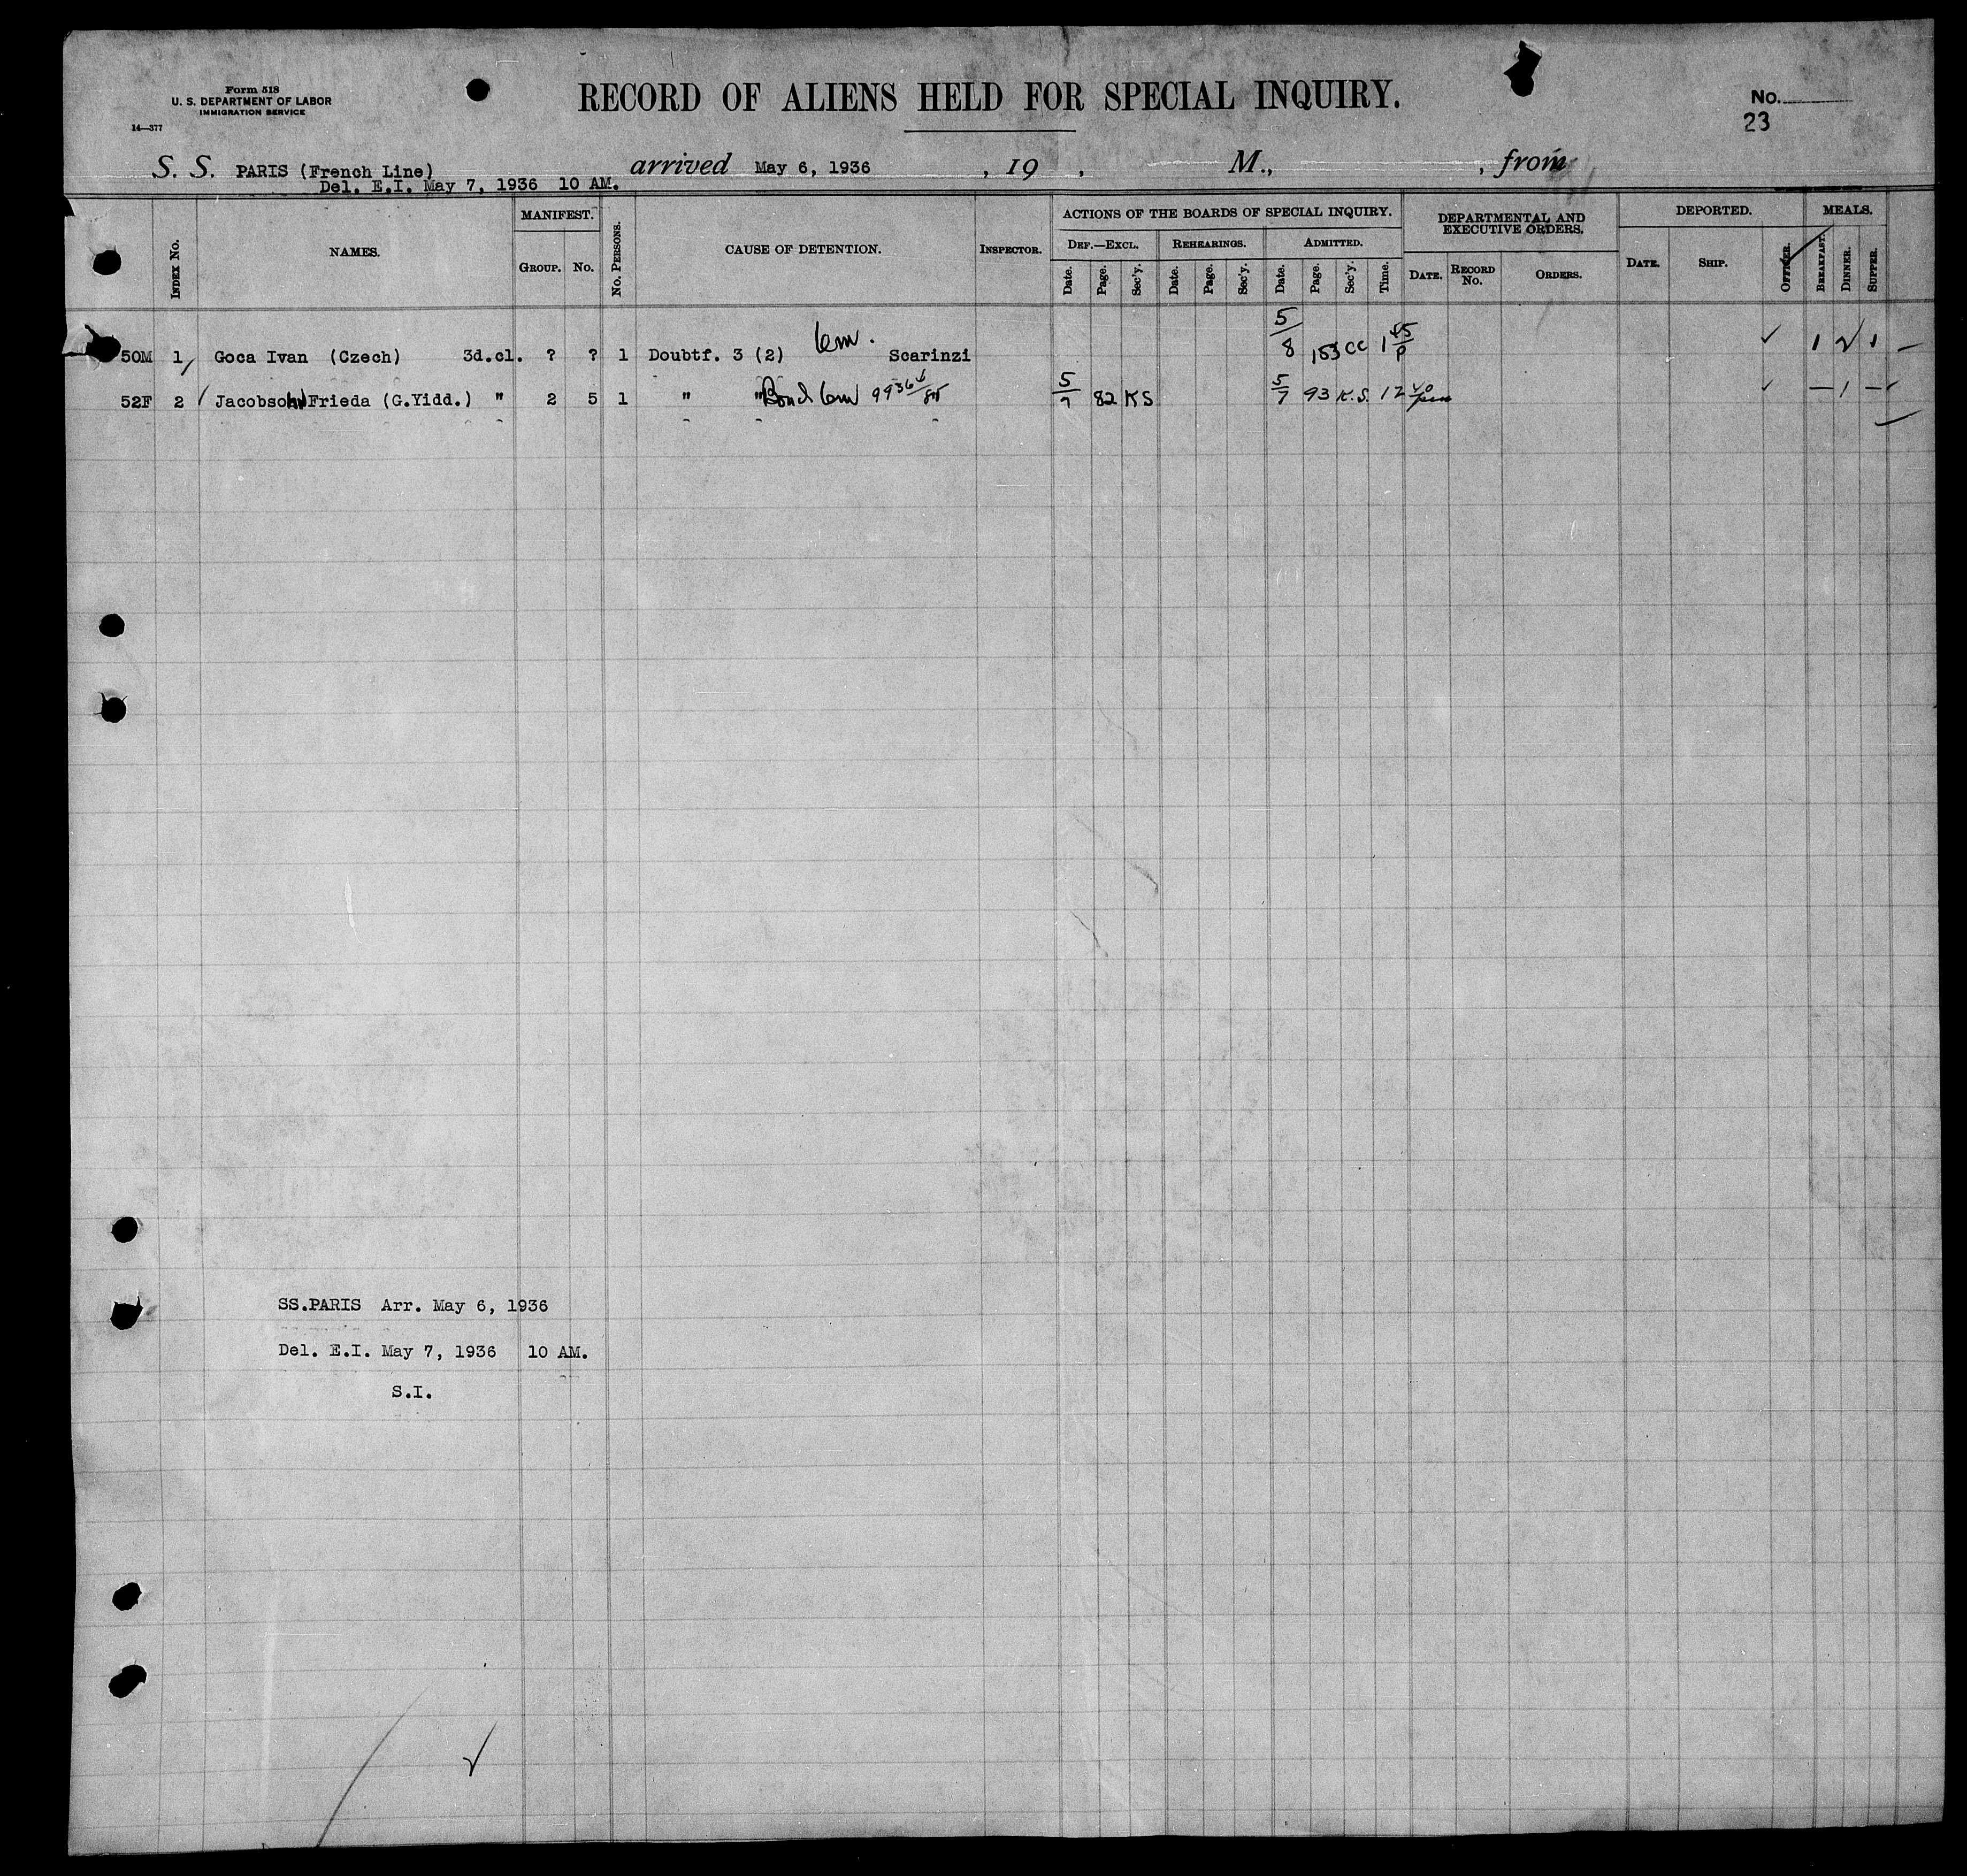 Form 518
U. S. DEPARTMENT OF LABOR
IMMIGRATION SERVICE
14—377
RECORD OF ALIENS HELD FOR SPECIAL INQUIRY.
No.
23
S. S. PARIS (French Line) arrived May 6, 1936 , 19 , M., , from
Del. E.I. May 7, 1936 10 AM.
INDEX No. NAMES. MANIFEST. GROUP. No. No. PERSONS. CAUSE OF DETENTION. INSPECTOR.
ACTIONS OF THE BOARDS OF SPECIAL INQUIRY.
DEF.—EXCL. REHEARINGS. ADMITTED.
Date. Page. Sec'y. Date. Page. Sec'y. Date. Page. Sec'y. Time.
DEPARTMENTAL AND EXECUTIVE ORDERS.
DATE. RECORD No. ORDERS.
DEPORTED.
DATE. SHIP. OFFICER.
MEALS.
BREAKFAST. DINNER. SUPPER.
50M 1 Goca Ivan (Czech) 3d.cl. ? ? 1 Doubtf. 3 (2) Scarinzi 5/8 153 CC 1 45/P 1 2 1
52F 2 Jacobsohn Frieda (G.Yidd.) " 2 5 1 " " Bond 5/7 82 KS 5/7 93 K.S. 12 40/pm — 1 —
SS.PARIS Arr. May 6, 1936
Del. E.I. May 7, 1936 10 AM.
S.I.